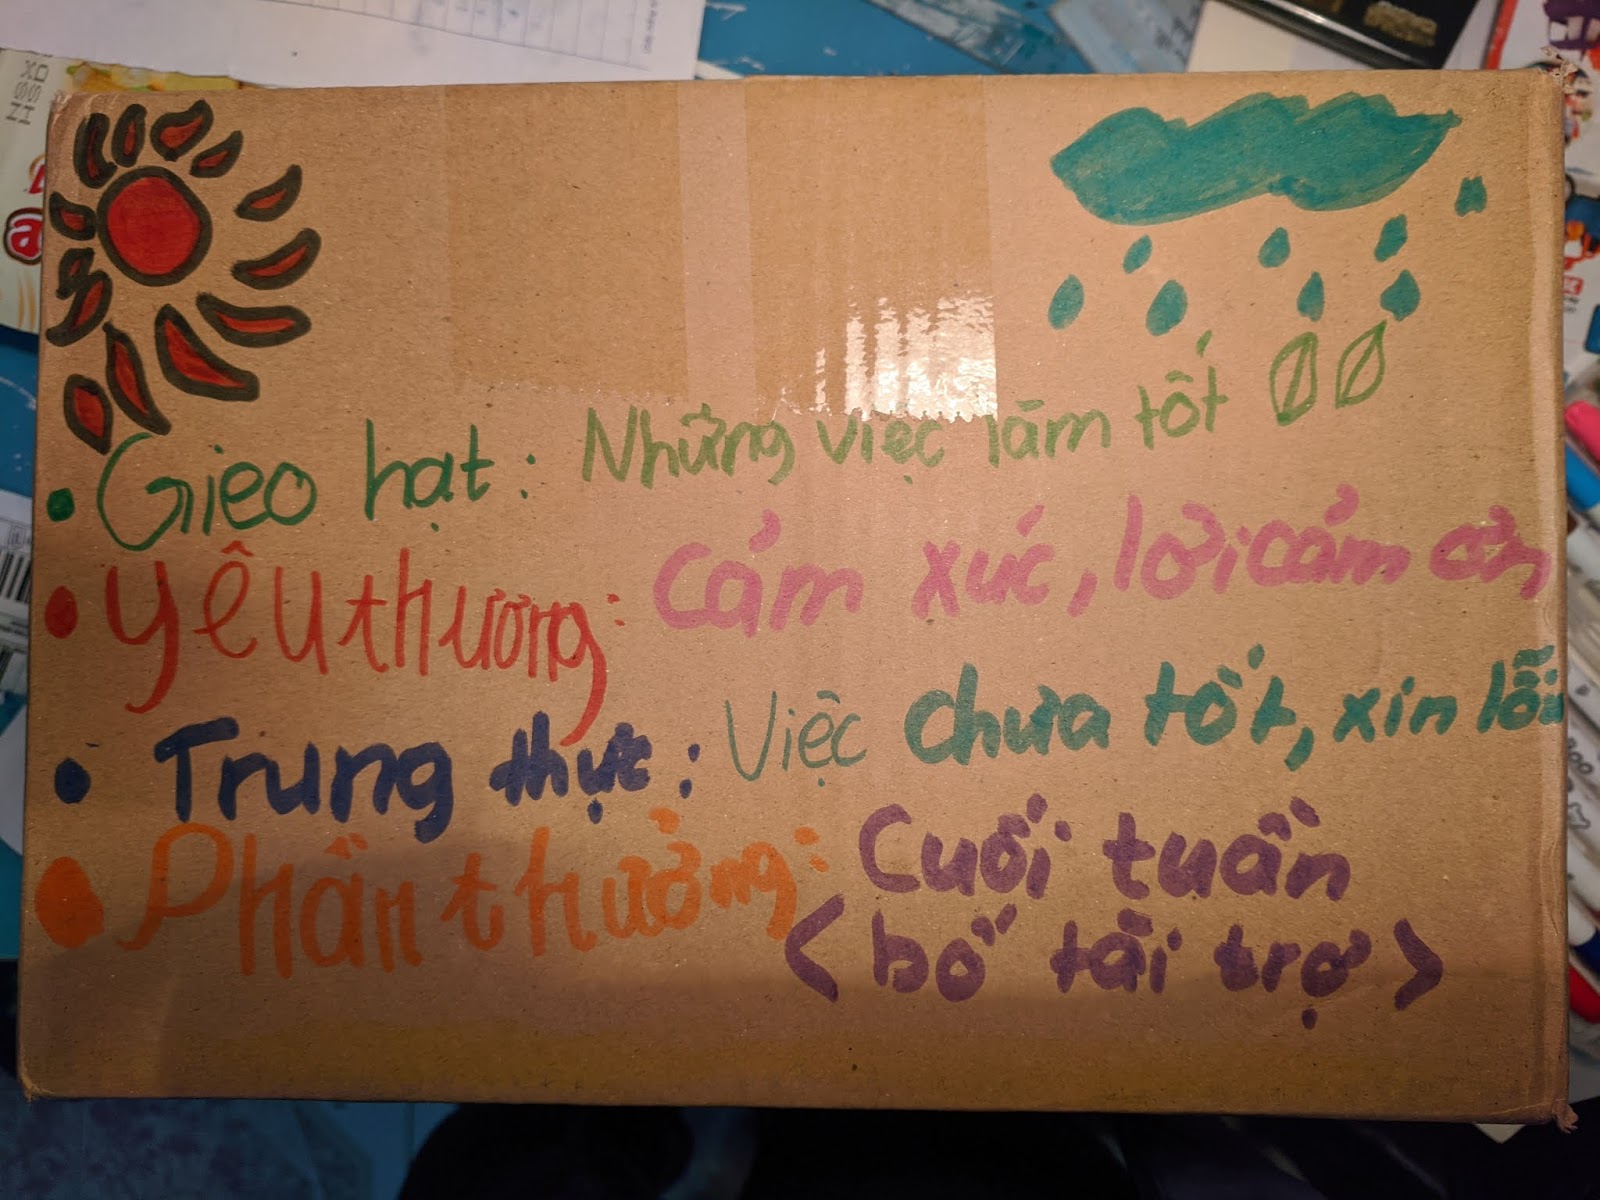 • Gieo hạt: Những việc làm tốt
• Yêu thương: Cảm xúc, lời cảm ơn
• Trung thực: Việc chưa tốt, xin lỗi
• Phần thưởng: Cuối tuần
<bố tài trợ>